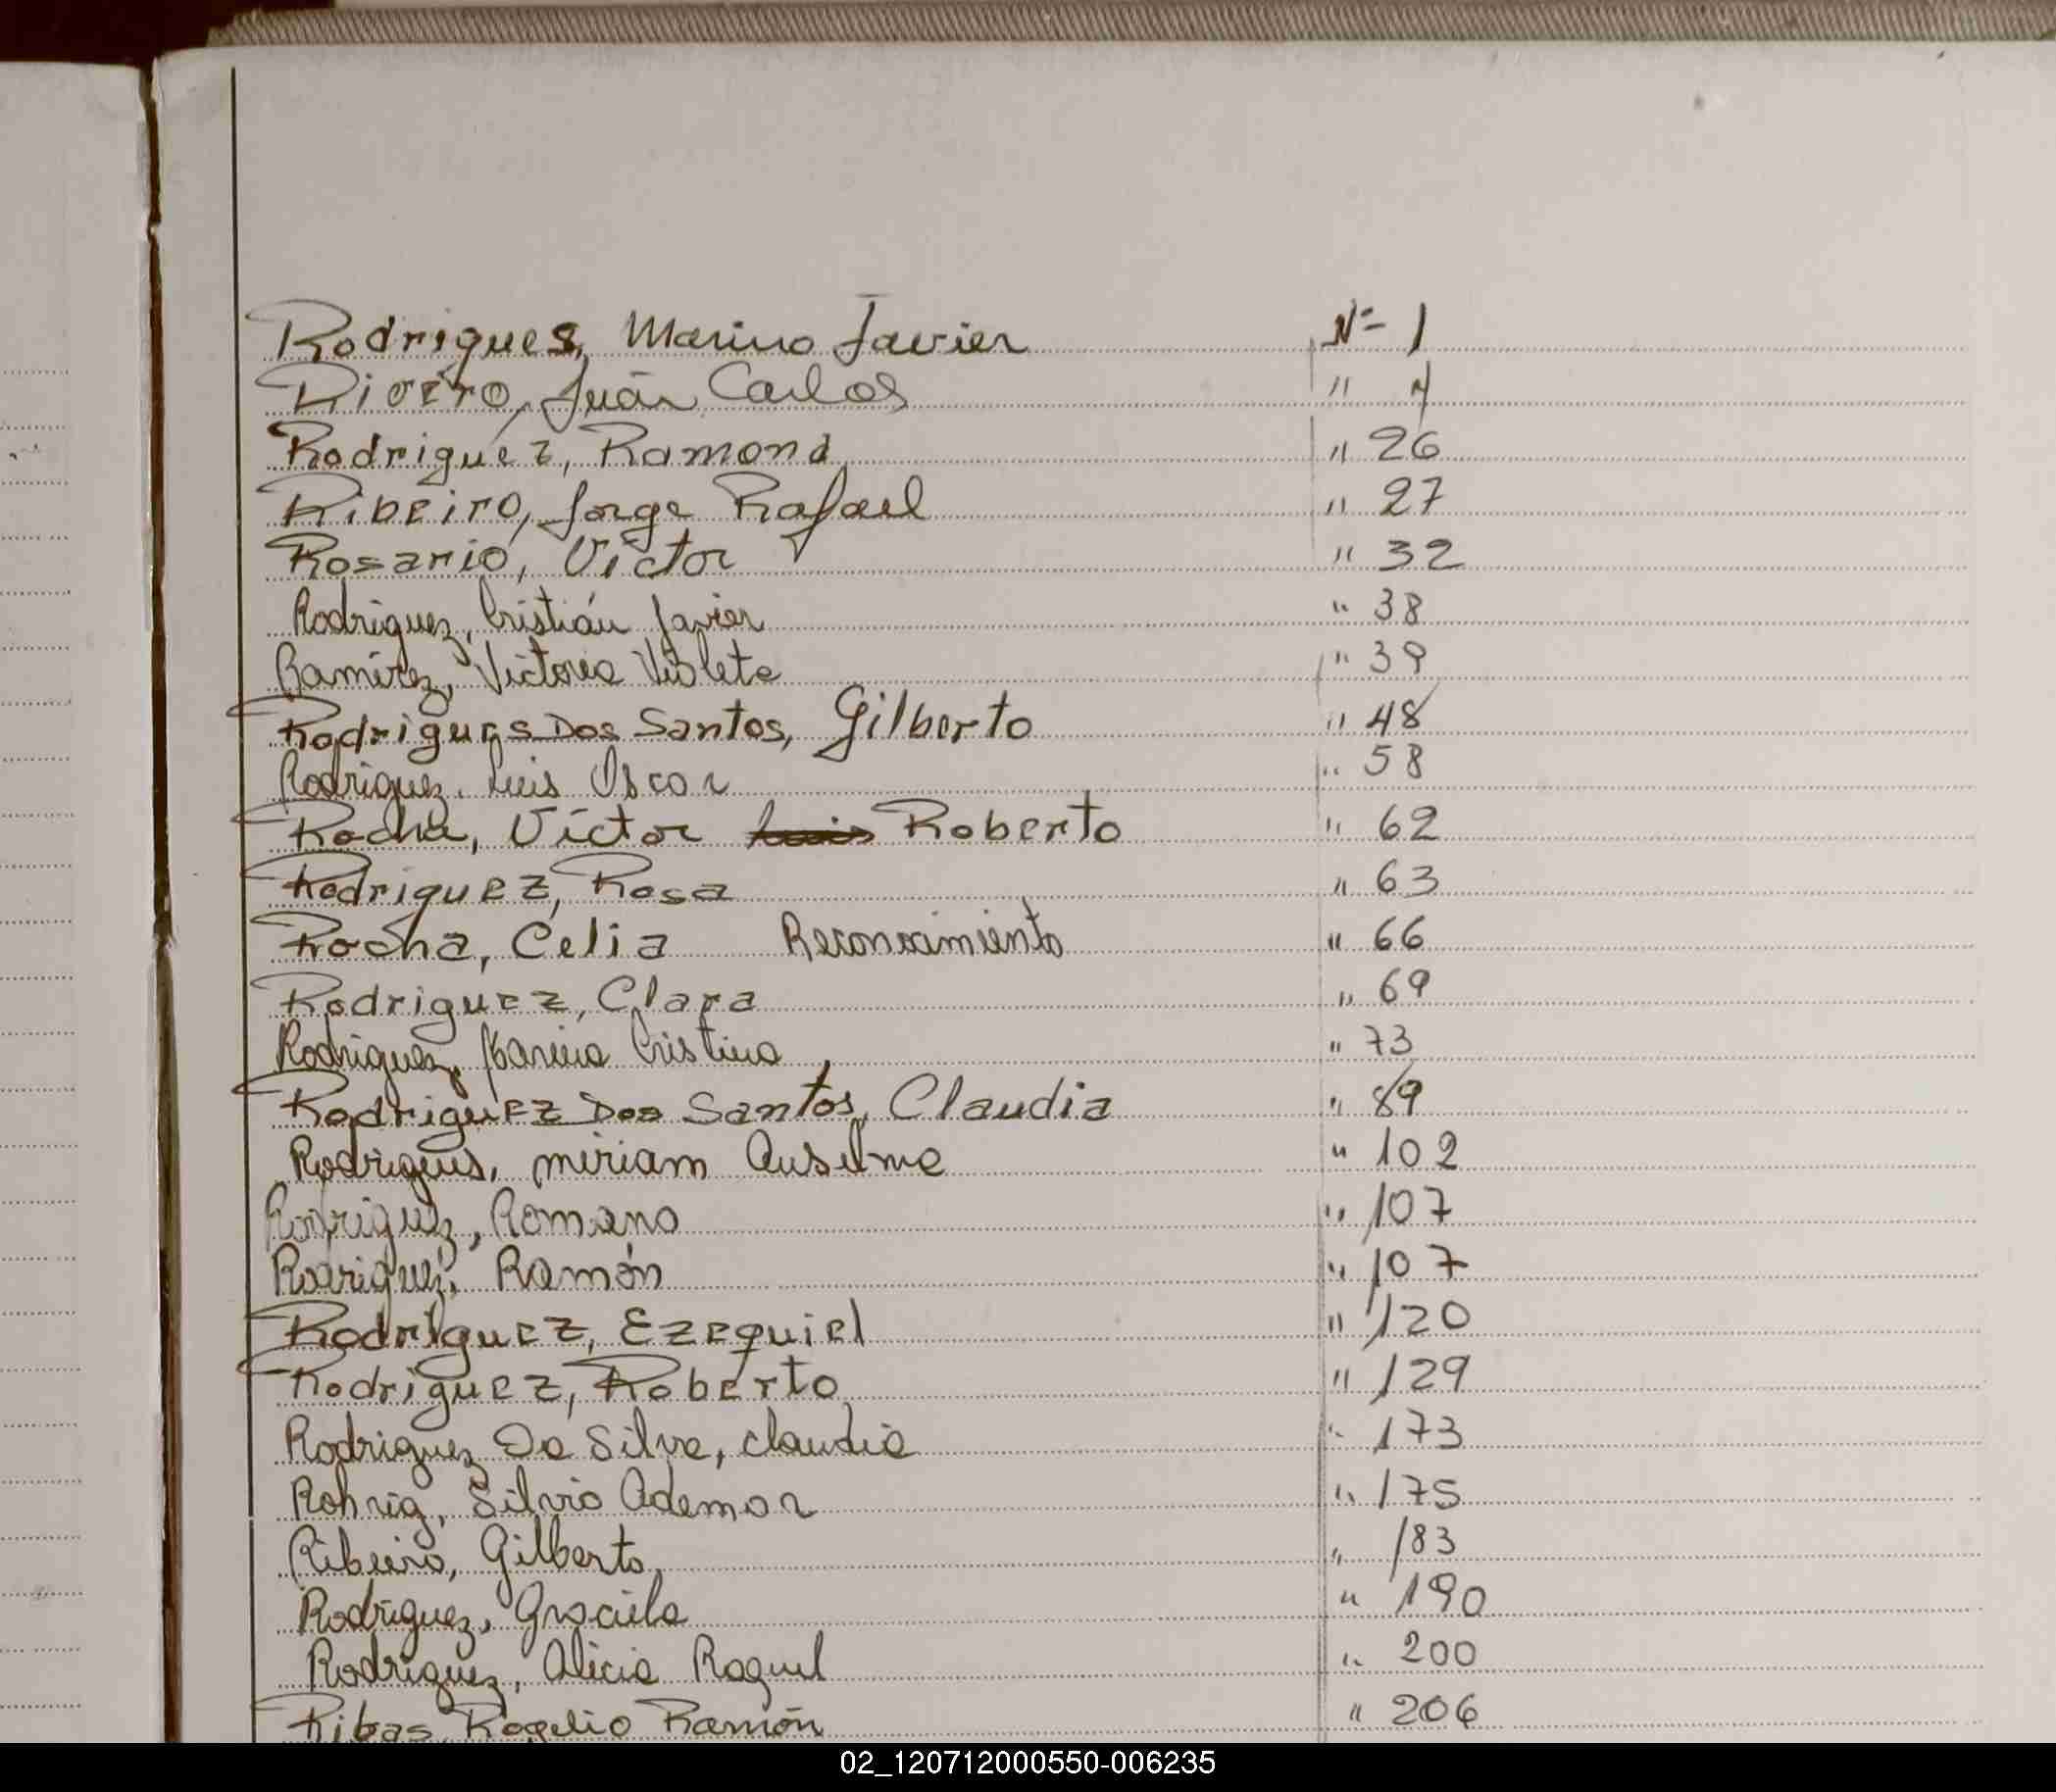 Rodrigues, Marino Javier Nº 1
Rivero, Juan Carlos " 7
Rodriguez, Ramona " 26
Ribeiro, Jorge Rafael " 27
Rosario, Víctor " 32
Rodriguez, Cristián Javier " 38
Ramírez, Victoria Violeta " 39
Rodrigues Dos Santos, Gilberto " 48
Rodriguez, Luis Oscar " 58
Rocha, Víctor Luis Roberto " 62
Rodriguez, Rosa " 63
Rocha, Celia Reconocimiento " 66
Rodriguez, Clara " 69
Rodriguez, Marina Cristina " 73
Rodriguez Dos Santos, Claudia " 89
Rodrigues, Miriam Anselma " 102
Rodriguez, Romano " 107
Rodriguez, Ramón " 107
Rodriguez, Ezequiel " 120
Rodriguez, Roberto " 129
Rodriguez Da Silva, Claudia " 173
Rohrig, Silvio Ademar " 175
Ribeiro, Gilberto " 183
Rodriguez, Graciela " 190
Rodriguez, Alicia Raquel " 200
Ribas, Rogelio Ramón " 206
02_120712000550-006235